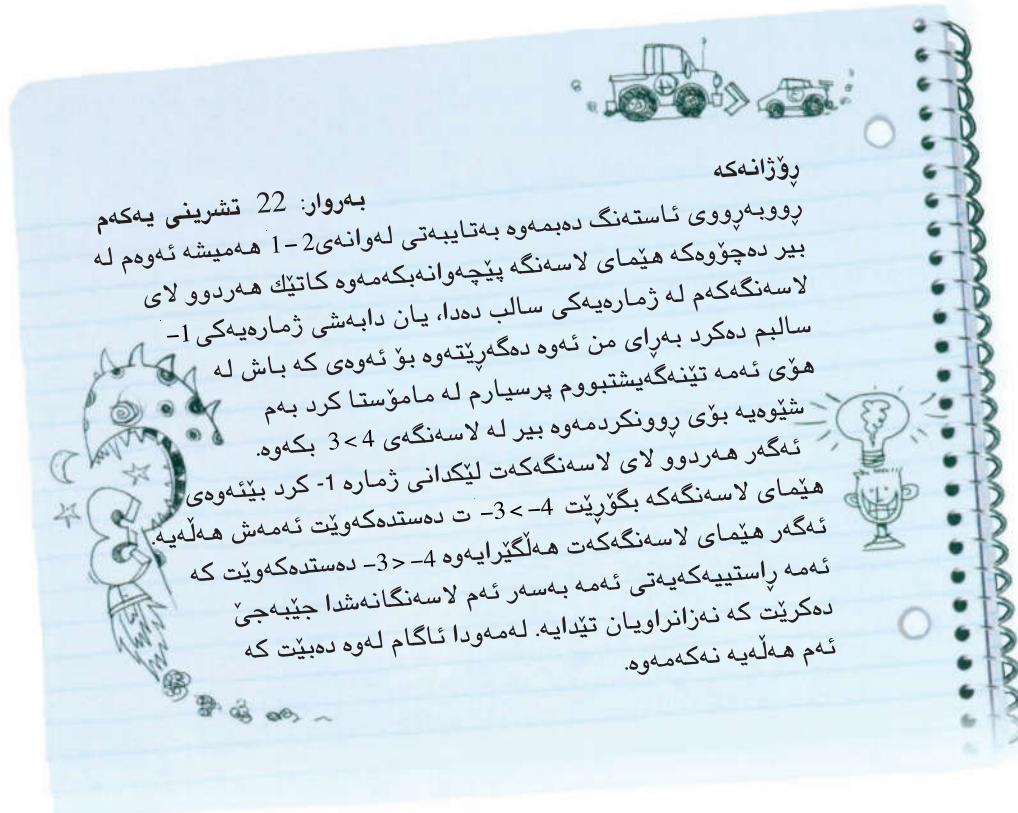 ڕۆژانەکە
بەروار: 22 تشرینی یەکەم
ڕووبەڕووی ئاستەنگ دەبمەوە بەتایبەتی لەوانەی2-1 هەمیشە ئەوەم لە
بیر دەچۆوەکە هێمای لاسەنگە پێچەوانەبکەمەوە کاتێك هەردوو لای
لاسەنگەکەم لە ژمارەیەکی سالب دەدا، یان دابەشی ژمارەیەکی 1-
سالبم دەکرد بەڕای من ئەوە دەگەڕێتەوە بۆ ئەوەی کە باش لە
هۆی ئەمە تێنەگەیشتبووم پرسیارم لە مامۆستا کرد بەم
شێوەیە بۆی ڕوونکردمەوە بیر لە لاسەنگەی 4 > 3 بکەوە.
ئەگەر هەردوو لای لاسەنگەکەت لێکدانی ژمارە 1- کرد بێئەوەی
هێمای لاسەنگەکە بگۆڕێت 4- > 3- ت دەستدەکەوێت ئەمەش هەڵەیە.
ئەگەر هێمای لاسەنگەکەت هەڵگێرایەوە 4- < 3- دەستدەکەوێت کە
ئەمە ڕاستییەکەیەتی ئەمە بەسەر ئەم لاسەنگانەشدا جێبەجێ
دەکرێت کە نەزانراویان تێدایە. لەمەودا ئاگام لەوە دەبێت کە
ئەم هەڵەیە نەکەمەوە.